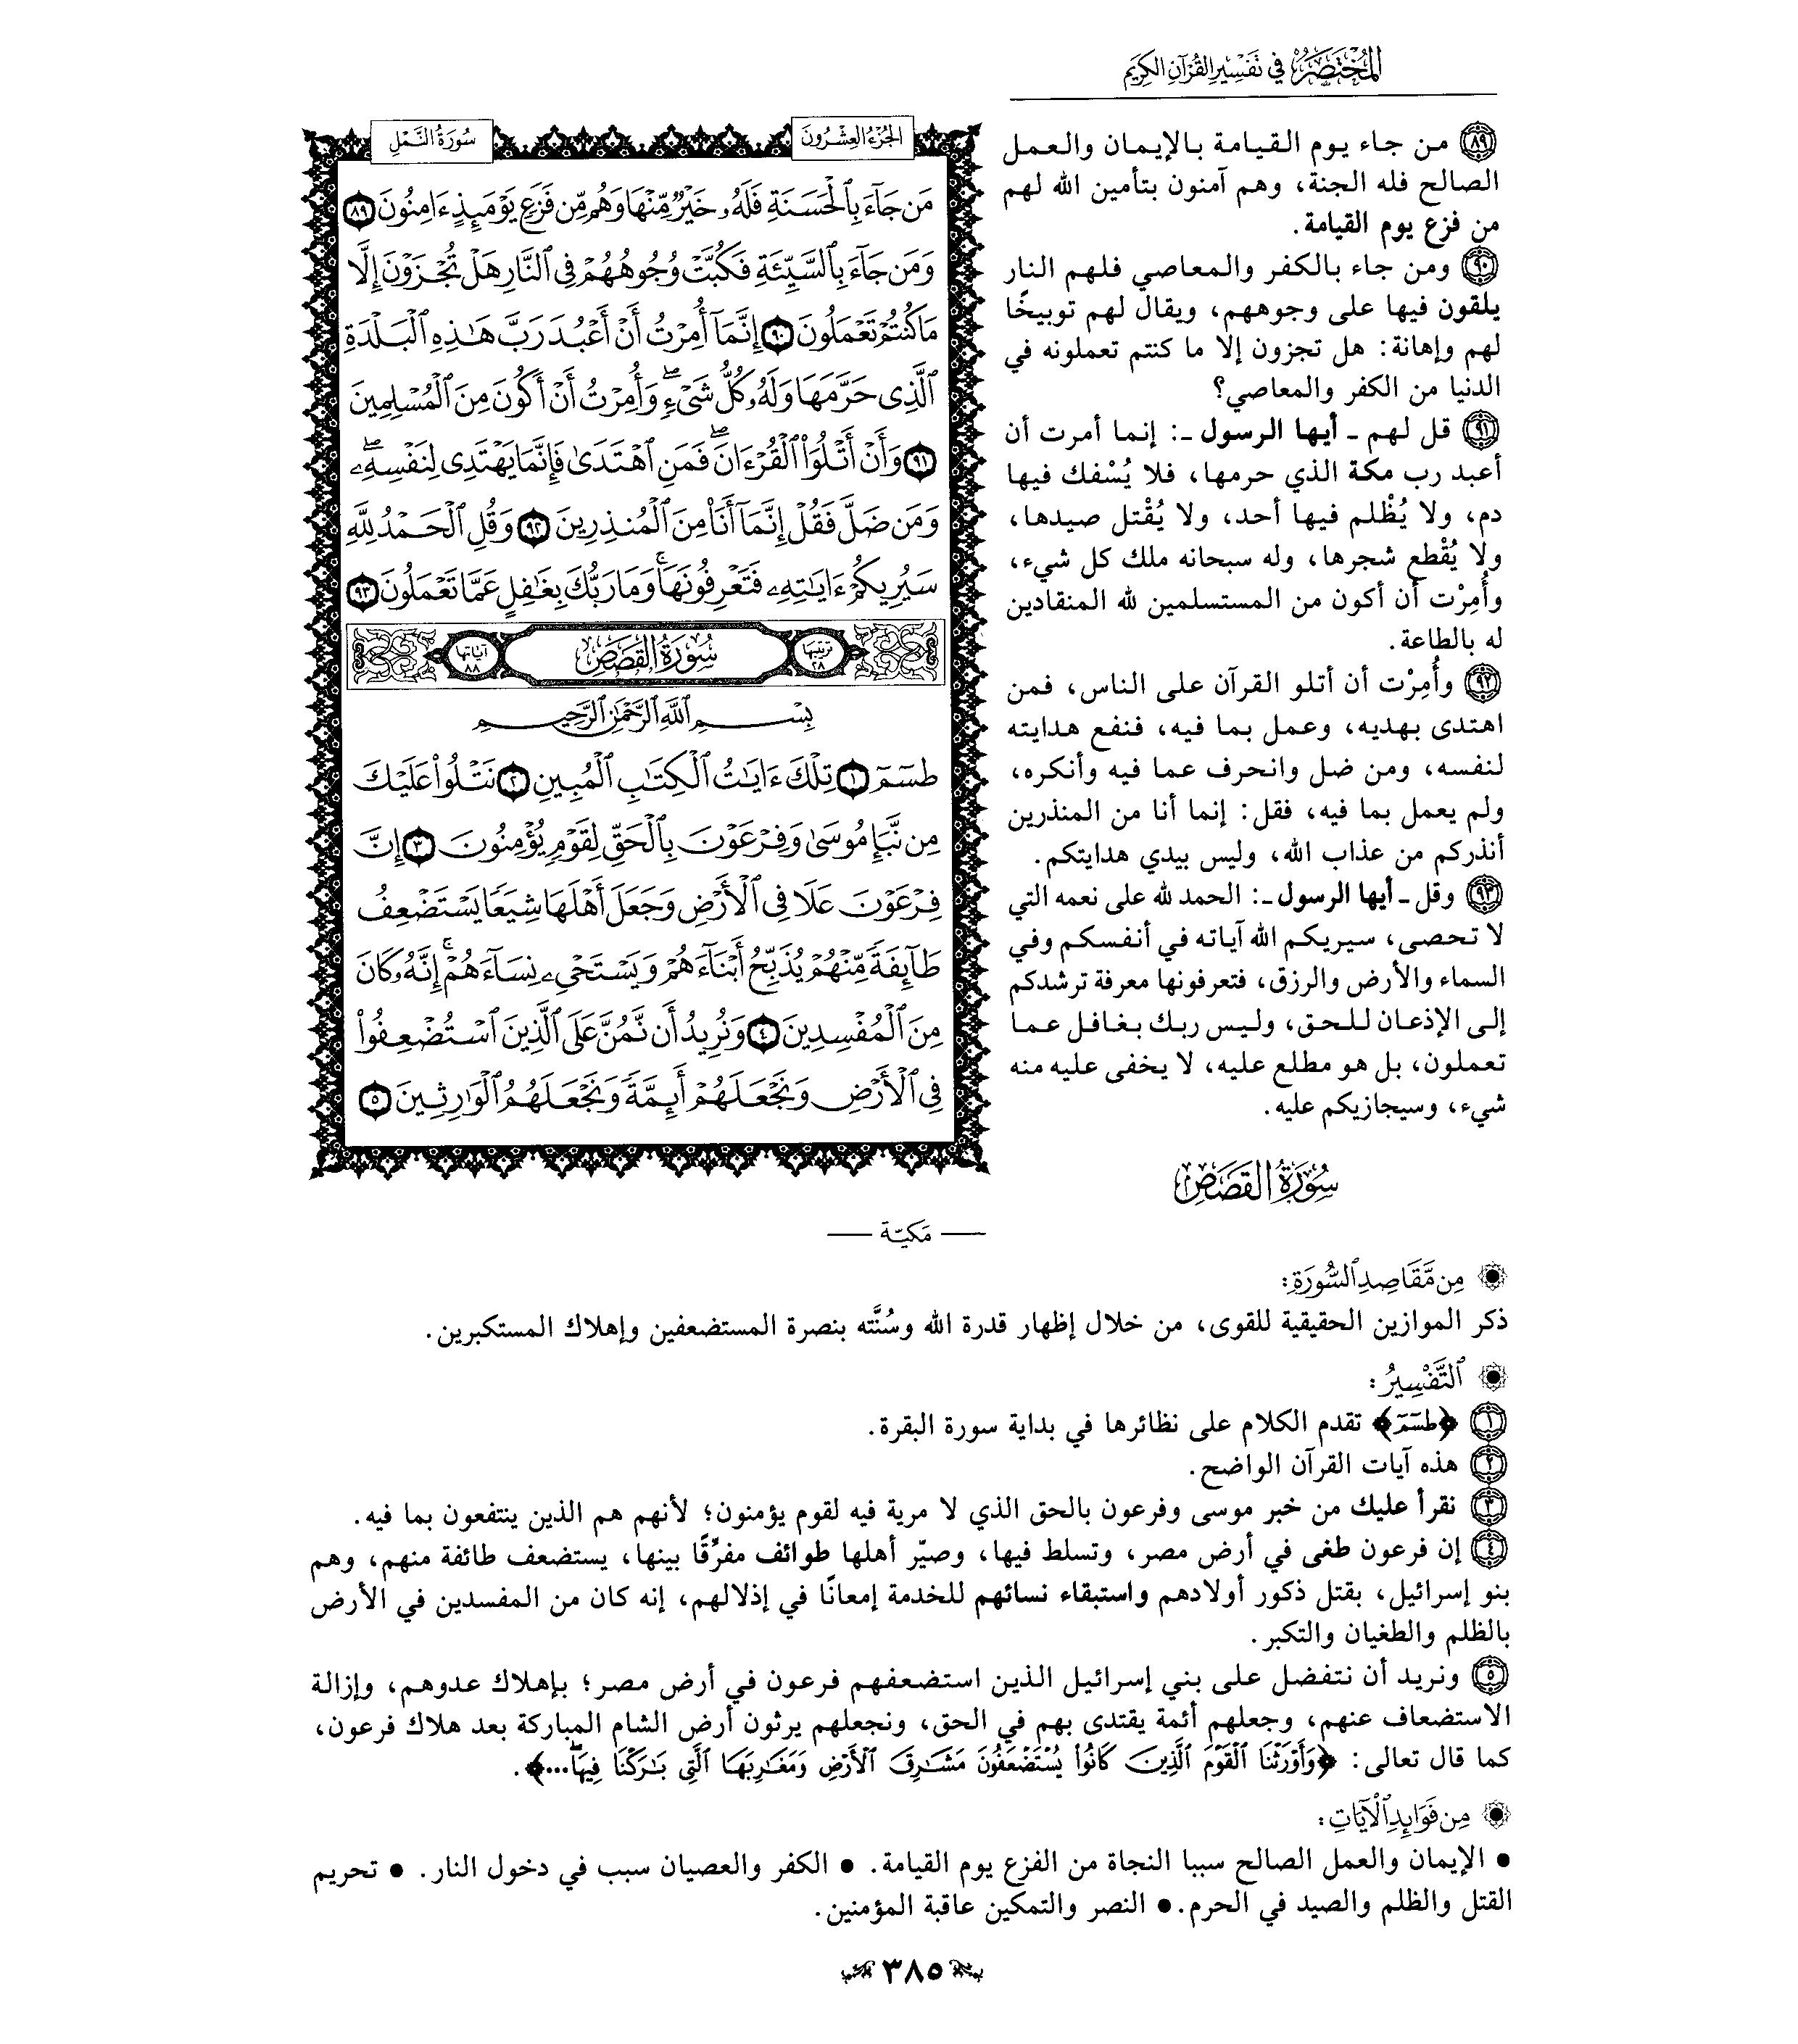 المختصر في تفسير القرآن الكريم
﴿٨٩﴾ من جاء يوم القيامة بالإيمان والعمل
الصالح فله الجنة، وهم آمنون بتأمين الله لهم
من فزع يوم القيامة.
﴿٩٠﴾ ومن جاء بالكفر والمعاصي فلهم النار
يلقون فيها على وجوههم، ويقال لهم توبيخًا
لهم وإهانة: هل تجزون إلا ما كنتم تعملونه في
الدنيا من الكفر والمعاصي؟
﴿٩١﴾ قل لهم ـ أيها الرسول ـ: إنما أمرت أن
أعبد رب مكة الذي حرمها، فلا يُسْفك فيها
دم، ولا يُظْلم فيها أحد، ولا يُقْتل صيدها،
ولا يُقْطع شجرها، وله سبحانه ملك كل شيء،
وأُمِرْت أن أكون من المستسلمين لله المنقادين
له بالطاعة.
﴿٩٢﴾ وأُمِرْت أن أتلو القرآن على الناس، فمن
اهتدى بهديه، وعمل بما فيه، فنفع هدايته
لنفسه، ومن ضل وانحرف عما فيه وأنكره،
ولم يعمل بما فيه، فقل: إنما أنا من المنذرين
أنذركم من عذاب الله، وليس بيدي هدايتكم.
﴿٩٣﴾ وقل ـ أيها الرسول ـ: الحمد لله على نعمه التي
لا تحصى، سيريكم الله آياته في أنفسكم وفي
السماء والأرض والرزق، فتعرفونها معرفة ترشدكم
إلى الإذعان للحق، وليس ربك بغافل عما
تعملون، بل هو مطلع عليه، لا يخفى عليه منه
شيء، وسيجازيكم عليه.
الجُزْءُ العِشْرُونَ سُورَةُ النَّمْلِ
مَن جَآءَ بِٱلْحَسَنَةِ فَلَهُۥ خَيْرٌ مِّنْهَا وَهُم مِّن فَزَعٍ يَوْمَئِذٍ ءَامِنُونَ ٨٩
وَمَن جَآءَ بِٱلسَّيِّئَةِ فَكُبَّتْ وُجُوهُهُمْ فِى ٱلنَّارِ هَلْ تُجْزَوْنَ إِلَّا
مَا كُنتُمْ تَعْمَلُونَ ٩٠ إِنَّمَآ أُمِرْتُ أَنْ أَعْبُدَ رَبَّ هَـٰذِهِ ٱلْبَلْدَةِ
ٱلَّذِى حَرَّمَهَا وَلَهُۥ كُلُّ شَىْءٍ ۖ وَأُمِرْتُ أَنْ أَكُونَ مِنَ ٱلْمُسْلِمِينَ
٩١ وَأَنْ أَتْلُوَا۟ ٱلْقُرْءَانَ ۖ فَمَنِ ٱهْتَدَىٰ فَإِنَّمَا يَهْتَدِى لِنَفْسِهِۦ ۖ
وَمَن ضَلَّ فَقُلْ إِنَّمَآ أَنَا۠ مِنَ ٱلْمُنذِرِينَ ٩٢ وَقُلِ ٱلْحَمْدُ لِلَّهِ
سَيُرِيكُمْ ءَايَـٰتِهِۦ فَتَعْرِفُونَهَا ۚ وَمَا رَبُّكَ بِغَـٰفِلٍ عَمَّا تَعْمَلُونَ ٩٣
ترتيبها ٢٨ سُورَةُ القَصَصِ آياتها ٨٨
بِسْمِ ٱللَّهِ ٱلرَّحْمَـٰنِ ٱلرَّحِيمِ
طسٓمٓ ١ تِلْكَ ءَايَـٰتُ ٱلْكِتَـٰبِ ٱلْمُبِينِ ٢ نَتْلُوا۟ عَلَيْكَ
مِن نَّبَإِ مُوسَىٰ وَفِرْعَوْنَ بِٱلْحَقِّ لِقَوْمٍ يُؤْمِنُونَ ٣ إِنَّ
فِرْعَوْنَ عَلَا فِى ٱلْأَرْضِ وَجَعَلَ أَهْلَهَا شِيَعًا يَسْتَضْعِفُ
طَآئِفَةً مِّنْهُمْ يُذَبِّحُ أَبْنَآءَهُمْ وَيَسْتَحْىِۦ نِسَآءَهُمْ ۚ إِنَّهُۥ كَانَ
مِنَ ٱلْمُفْسِدِينَ ٤ وَنُرِيدُ أَن نَّمُنَّ عَلَى ٱلَّذِينَ ٱسْتُضْعِفُوا۟
فِى ٱلْأَرْضِ وَنَجْعَلَهُمْ أَئِمَّةً وَنَجْعَلَهُمُ ٱلْوَٰرِثِينَ ٥
سُورَةُ القَصَصِ
— مَكيّة —
مِن مَّقَاصِدِ ٱلسُّورَةِ:
ذكر الموازين الحقيقية للقوى، من خلال إظهار قدرة الله وسُنَّته بنصرة المستضعفين وإهلاك المستكبرين.
ٱلتَّفْسِيرُ:
﴿١﴾ ﴿طسٓمٓ﴾ تقدم الكلام على نظائرها في بداية سورة البقرة.
﴿٢﴾ هذه آيات القرآن الواضح.
﴿٣﴾ نقرأ عليك من خبر موسى وفرعون بالحق الذي لا مرية فيه لقوم يؤمنون؛ لأنهم هم الذين ينتفعون بما فيه.
﴿٤﴾ إن فرعون طغى في أرض مصر، وتسلط فيها، وصيّر أهلها طوائف مفرِّقًا بينها، يستضعف طائفة منهم، وهم
بنو إسرائيل، بقتل ذكور أولادهم واستبقاء نسائهم للخدمة إمعانًا في إذلالهم، إنه كان من المفسدين في الأرض
بالظلم والطغيان والتكبر.
﴿٥﴾ ونريد أن نتفضل على بني إسرائيل الذين استضعفهم فرعون في أرض مصر؛ بإهلاك عدوهم، وإزالة
الاستضعاف عنهم، وجعلهم أئمة يقتدى بهم في الحق، ونجعلهم يرثون أرض الشام المباركة بعد هلاك فرعون،
كما قال تعالى: ﴿وَأَوْرَثْنَا ٱلْقَوْمَ ٱلَّذِينَ كَانُوا۟ يُسْتَضْعَفُونَ مَشَـٰرِقَ ٱلْأَرْضِ وَمَغَـٰرِبَهَا ٱلَّتِى بَـٰرَكْنَا فِيهَا ۖ...﴾.
مِن فَوَائِدِ ٱلْآيَاتِ:
● الإيمان والعمل الصالح سببا النجاة من الفزع يوم القيامة. ● الكفر والعصيان سبب في دخول النار. ● تحريم
القتل والظلم والصيد في الحرم. ● النصر والتمكين عاقبة المؤمنين.
٣٨٥